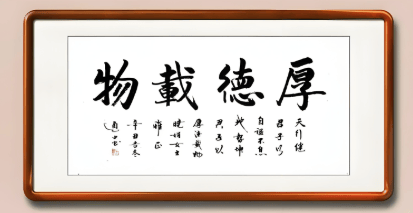 厚德載物
天行健
君子以
自強不息
地勢坤
君子以
厚德載物
曉娟女士
雅正
辛丑